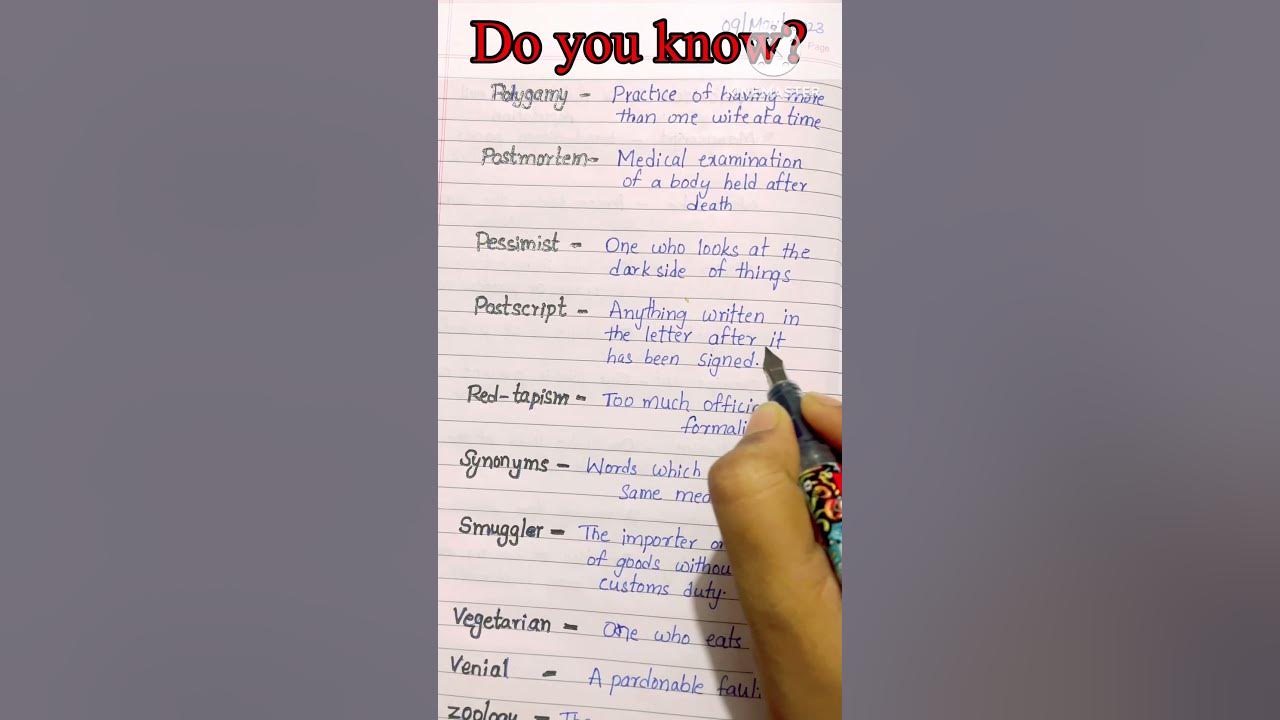 Do you know?
09/Mar/23
Page
KINEMASTER
Polygamy - Practice of having more
than one wife at a time
Postmortem- Medical examination
of a body held after
death
Pessimist - One who looks at the
dark side of things
Postscript - Anything written in
the letter after it
has been signed.
Red-tapism - Too much
Synonyms - Words which
Same
Smuggler - The importer
of goods
customs duty.
Vegetarian - One who eats
Venial - A pardonable
zoology -